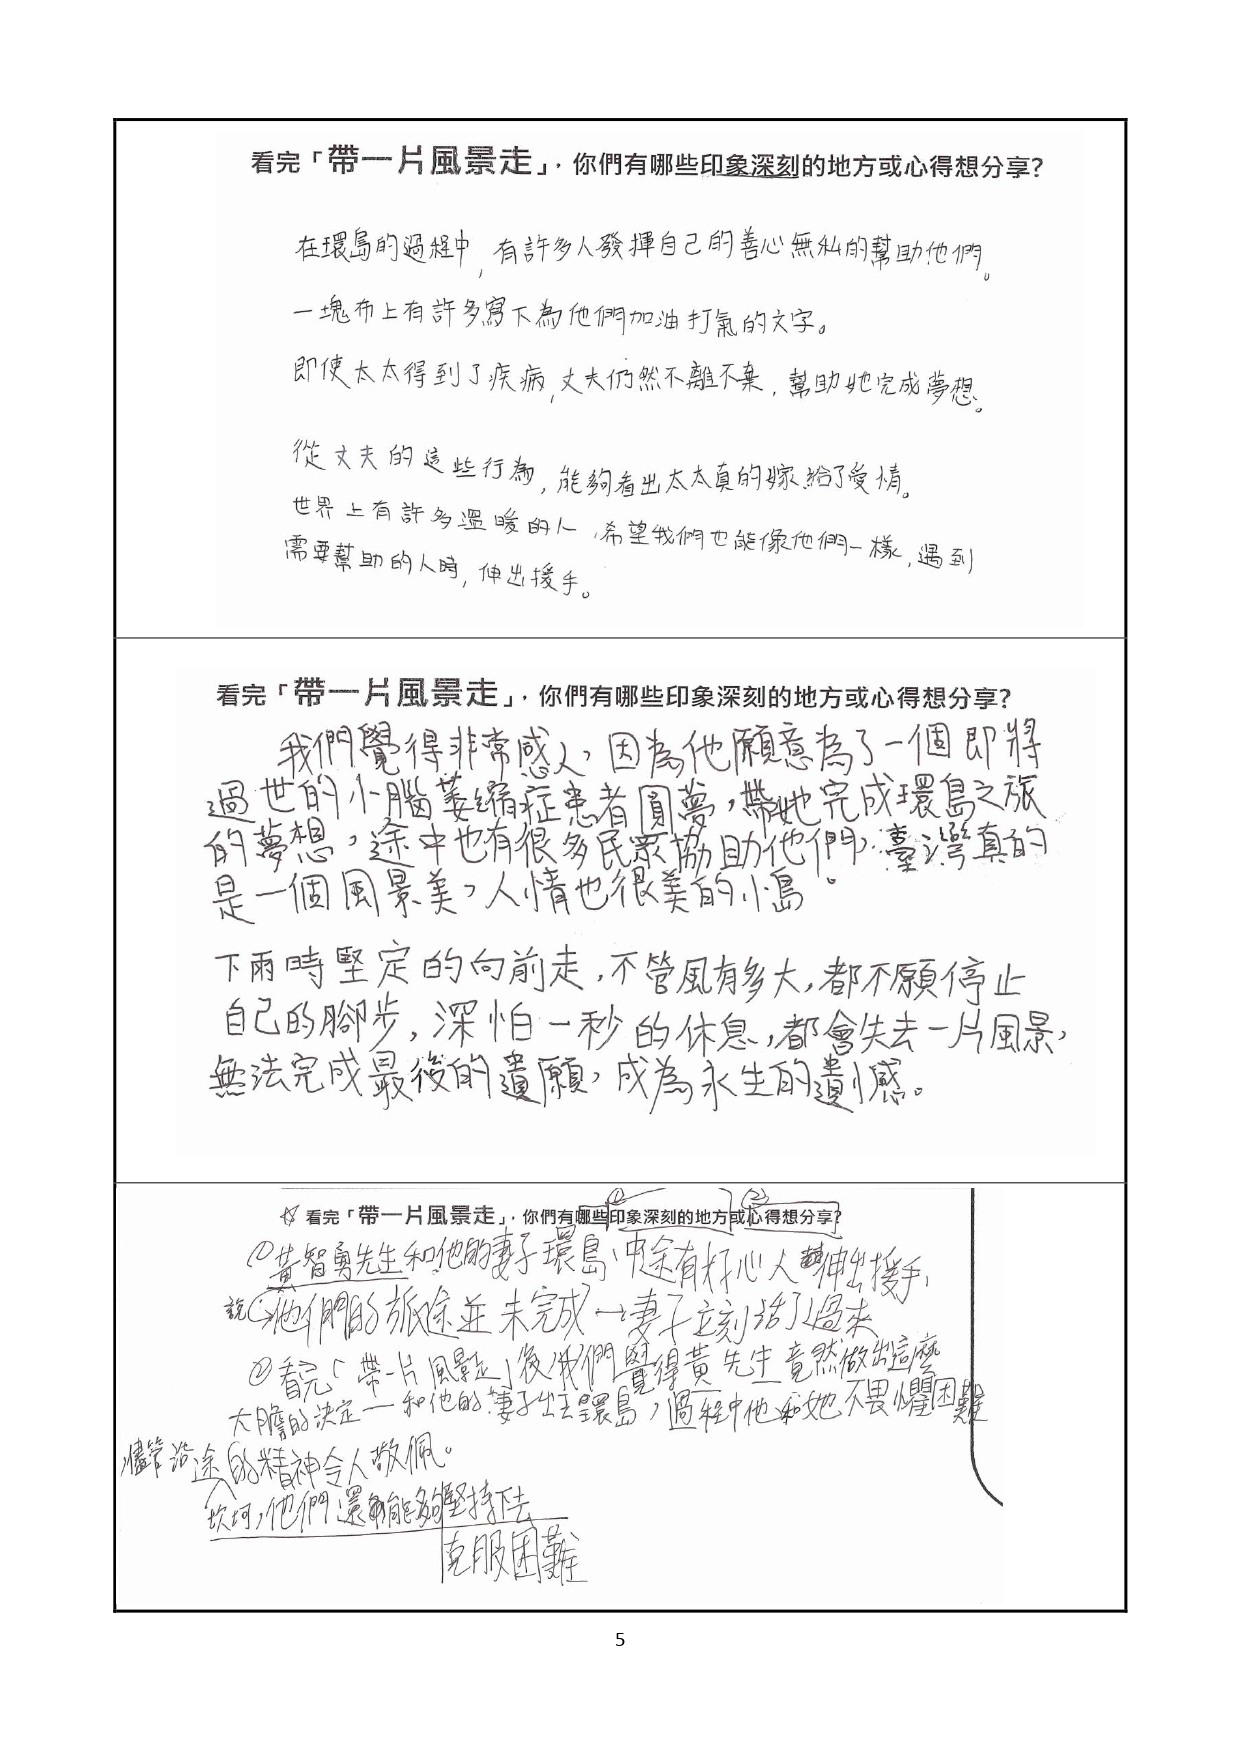 看完「帶一片風景走」，你們有哪些印象深刻的地方或心得想分享?
在環島的過程中，有許多人發揮自己的善心無私的幫助他們。
一塊布上有許多寫下為他們加油打氣的文字。
即使太太得到了疾病，丈夫仍然不離不棄，幫助她完成夢想。
從丈夫的這些行為，能夠看出太太真的嫁給了愛情。
世界上有許多溫暖的人，希望我們也能像他們一樣，遇到
需要幫助的人時，伸出援手。
看完「帶一片風景走」，你們有哪些印象深刻的地方或心得想分享?
我們覺得非常感人，因為他願意為了一個即將
過世的小腦萎縮症患者圓夢，帶她完成環島之旅
的夢想，途中也有很多民眾協助他們，臺灣真的
是一個風景美，人情也很美的小島。
下雨時堅定的向前走，不管風有多大，都不願停止
自己的腳步，深怕一秒的休息，都會失去一片風景，
無法完成最後的遺願，成為永生的遺憾。
① ②
☆ 看完「帶一片風景走」，你們有哪些印象深刻的地方或心得想分享?
① 黃智勇先生和他的妻子環島，中途有好心人伸出援手，
說：他們的旅途並未完成→妻子立刻活了過來
② 看完「帶一片風景走」後，我們覺得黃先生竟然做出這麼
大膽的決定一和他的妻子出去環島，過程中他和她不畏懼困難
儘管沿途的精神令人敬佩。
坎坷，他們還能夠堅持下去
克服困難
5